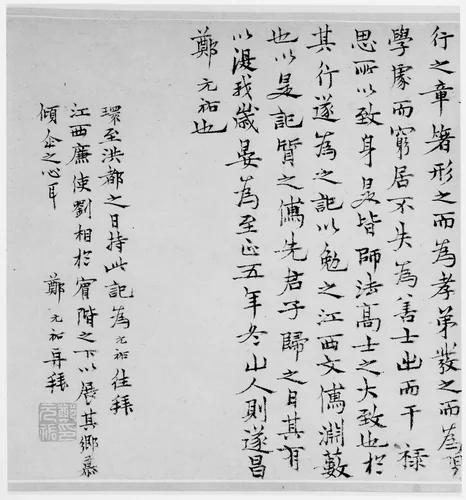 行之章著形之而為孝弟發之而為
學處而窮居不失為善士出而干祿
思所以致身是皆師法高士之大致也於
其行遂為之記以勉之江西文儒淵藪
也以是記質之儒先君子歸之日其有
以漫我歲晏為至正五年冬山人則遂昌
鄭元祐也
環至洪都之日持此記為元祐往拜
江西廉使劉相於賓階之下以展其鄉慕
傾企之心耳 鄭元祐再拜